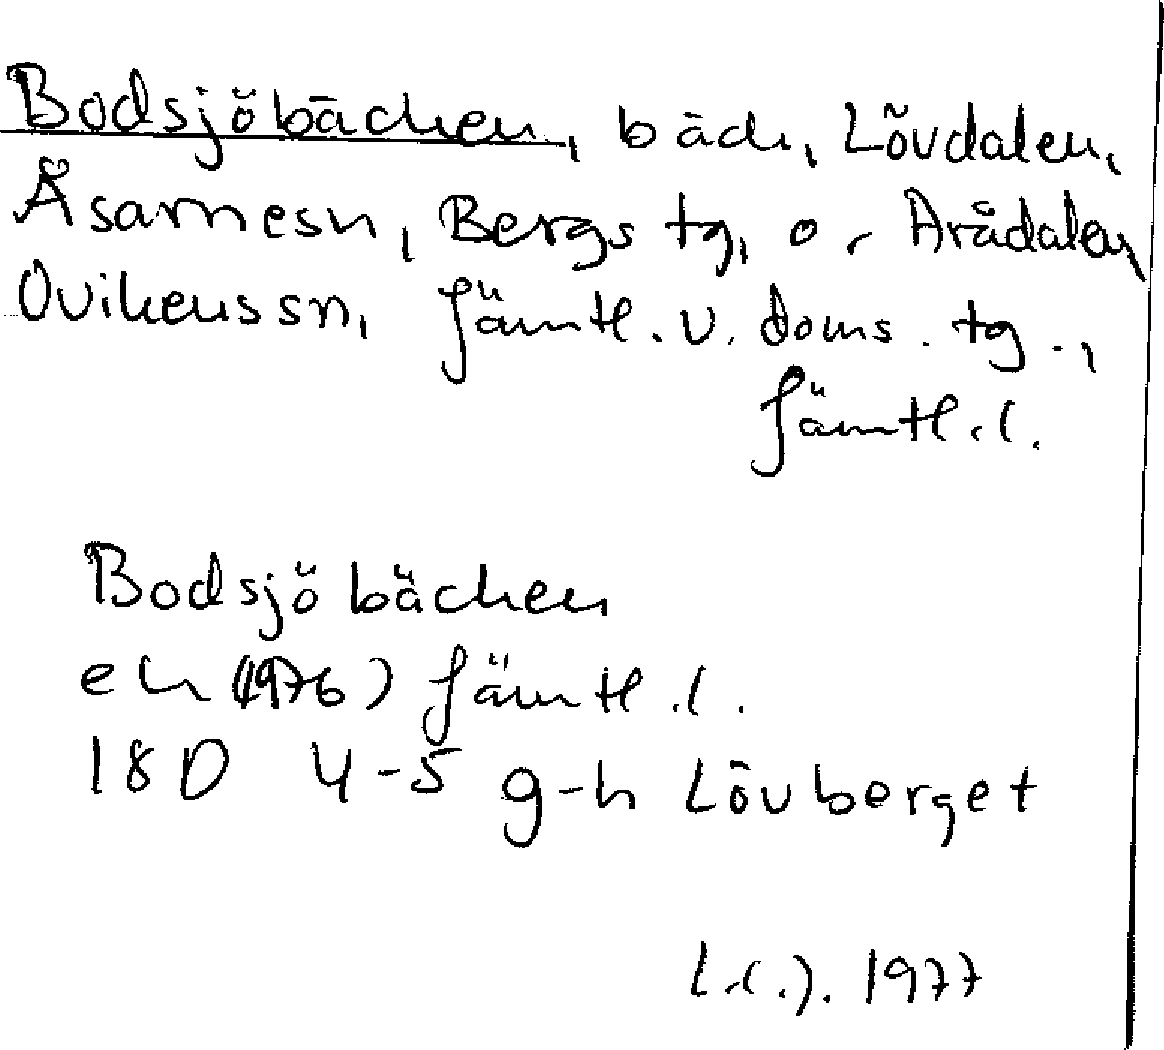 Bodsjöbäcken, bäck, Lövdalen,
Åsarnesn, Bergs tg, o. Arådalen
Ovikenssn, Jämtl. v. doms. tg.,
Jämtl. l.
Bodsjöbäcken
ek (1976) Jämtl. l.
18D 4-5 g-h Lövberget
1977